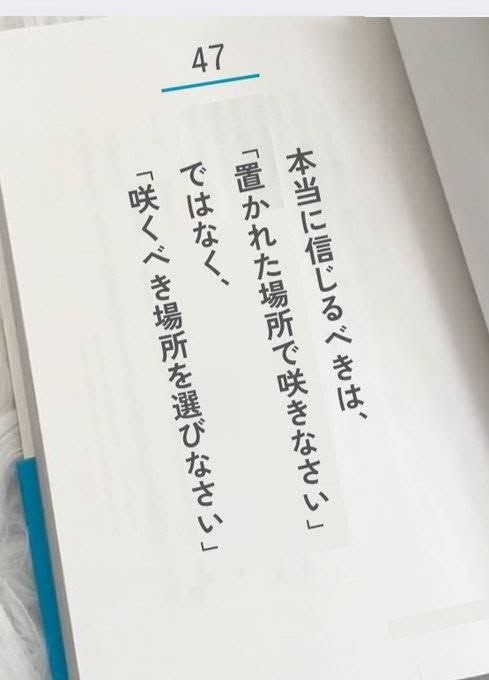 47
本当に信じるべきは、
「置かれた場所で咲きなさい」
ではなく、
「咲くべき場所を選びなさい」